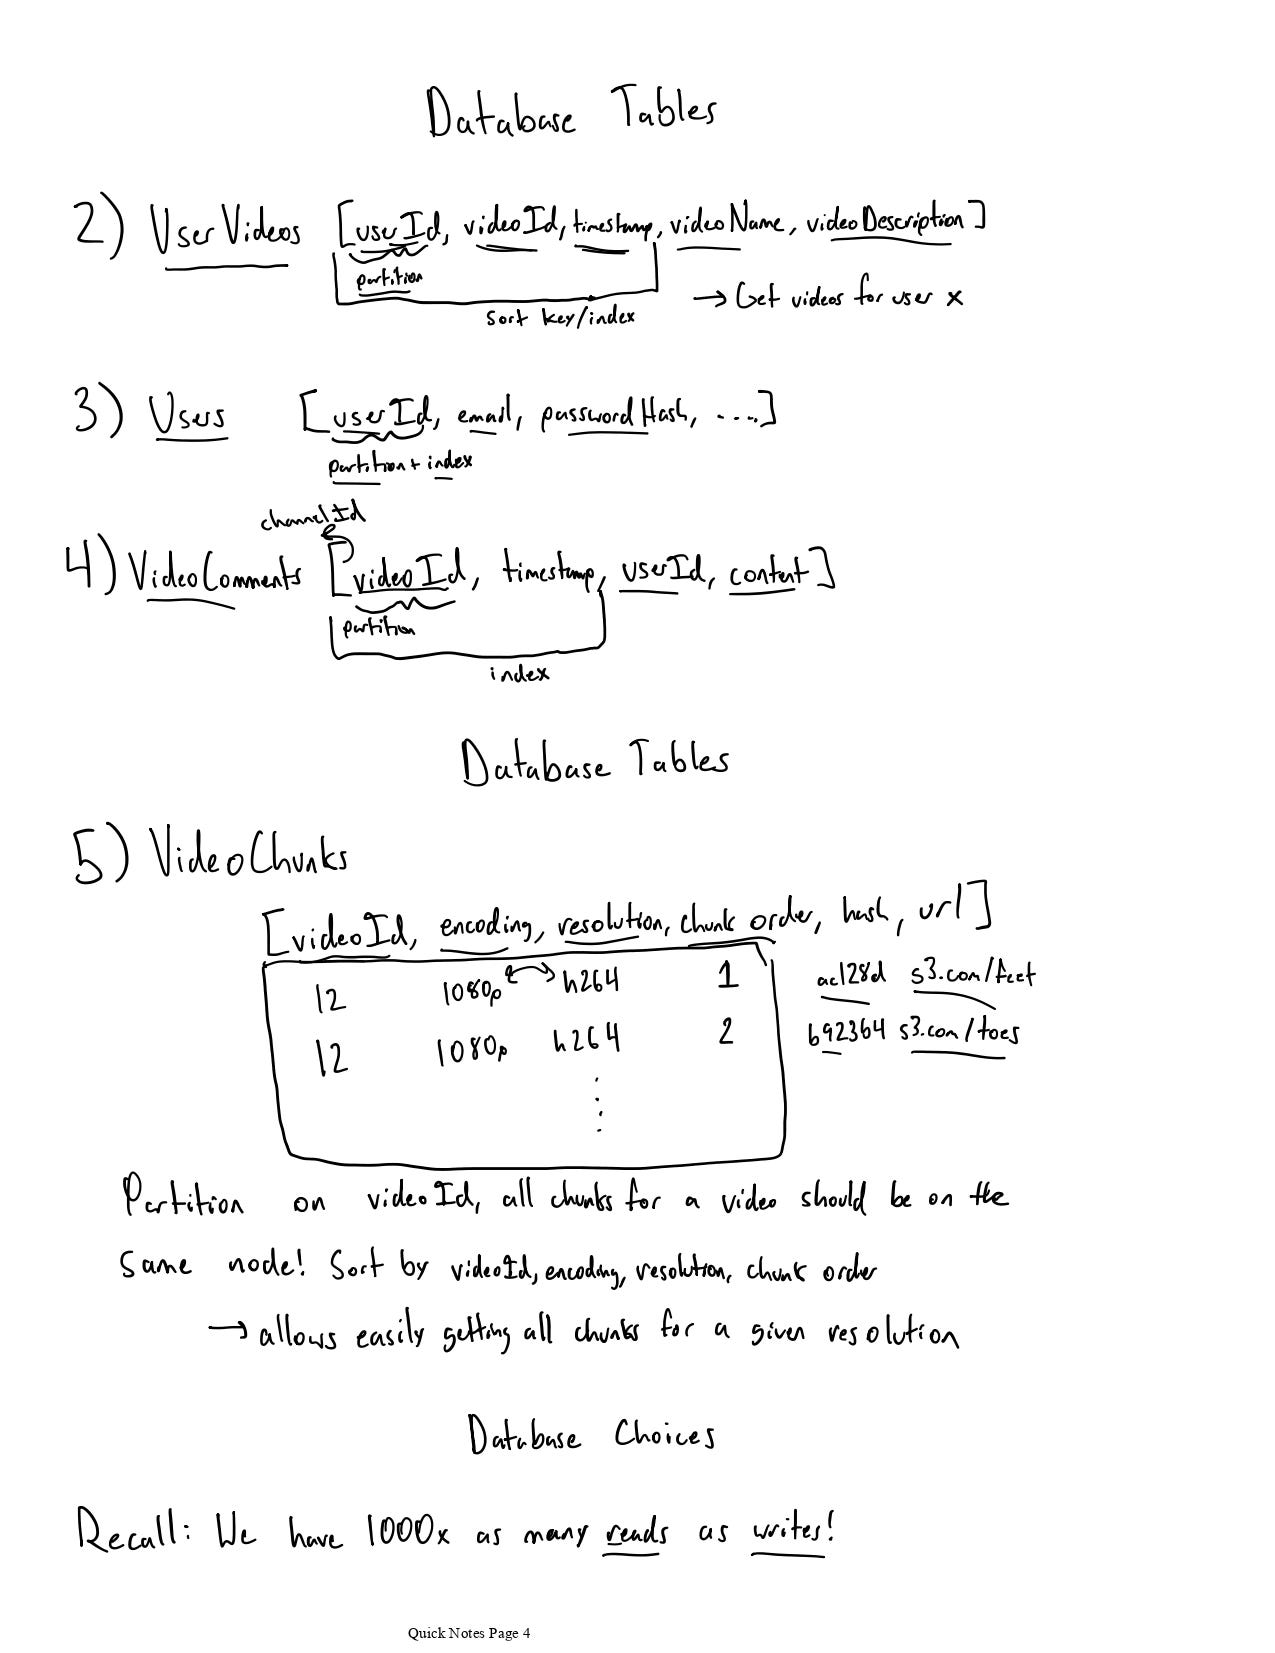 Database Tables
2) UserVideos [userId, videoId, timestamp, videoName, videoDescription]
partition
sort key/index
→ Get videos for user x
3) Users [userId, email, passwordHash, ....]
partition + index
channelId
4) VideoComments [videoId, timestamp, userId, content]
partition
index
Database Tables
5) VideoChunks
[videoId, encoding, resolution, chunk order, hash, url]
12 1080p h264 1 ac128d s3.com/feet
12 1080p h264 2 b92364 s3.com/toes
Partition on videoId, all chunks for a video should be on the
same node! Sort by videoId, encoding, resolution, chunk order
→ allows easily getting all chunks for a given resolution
Database Choices
Recall: We have 1000x as many reads as writes!
Quick Notes Page 4